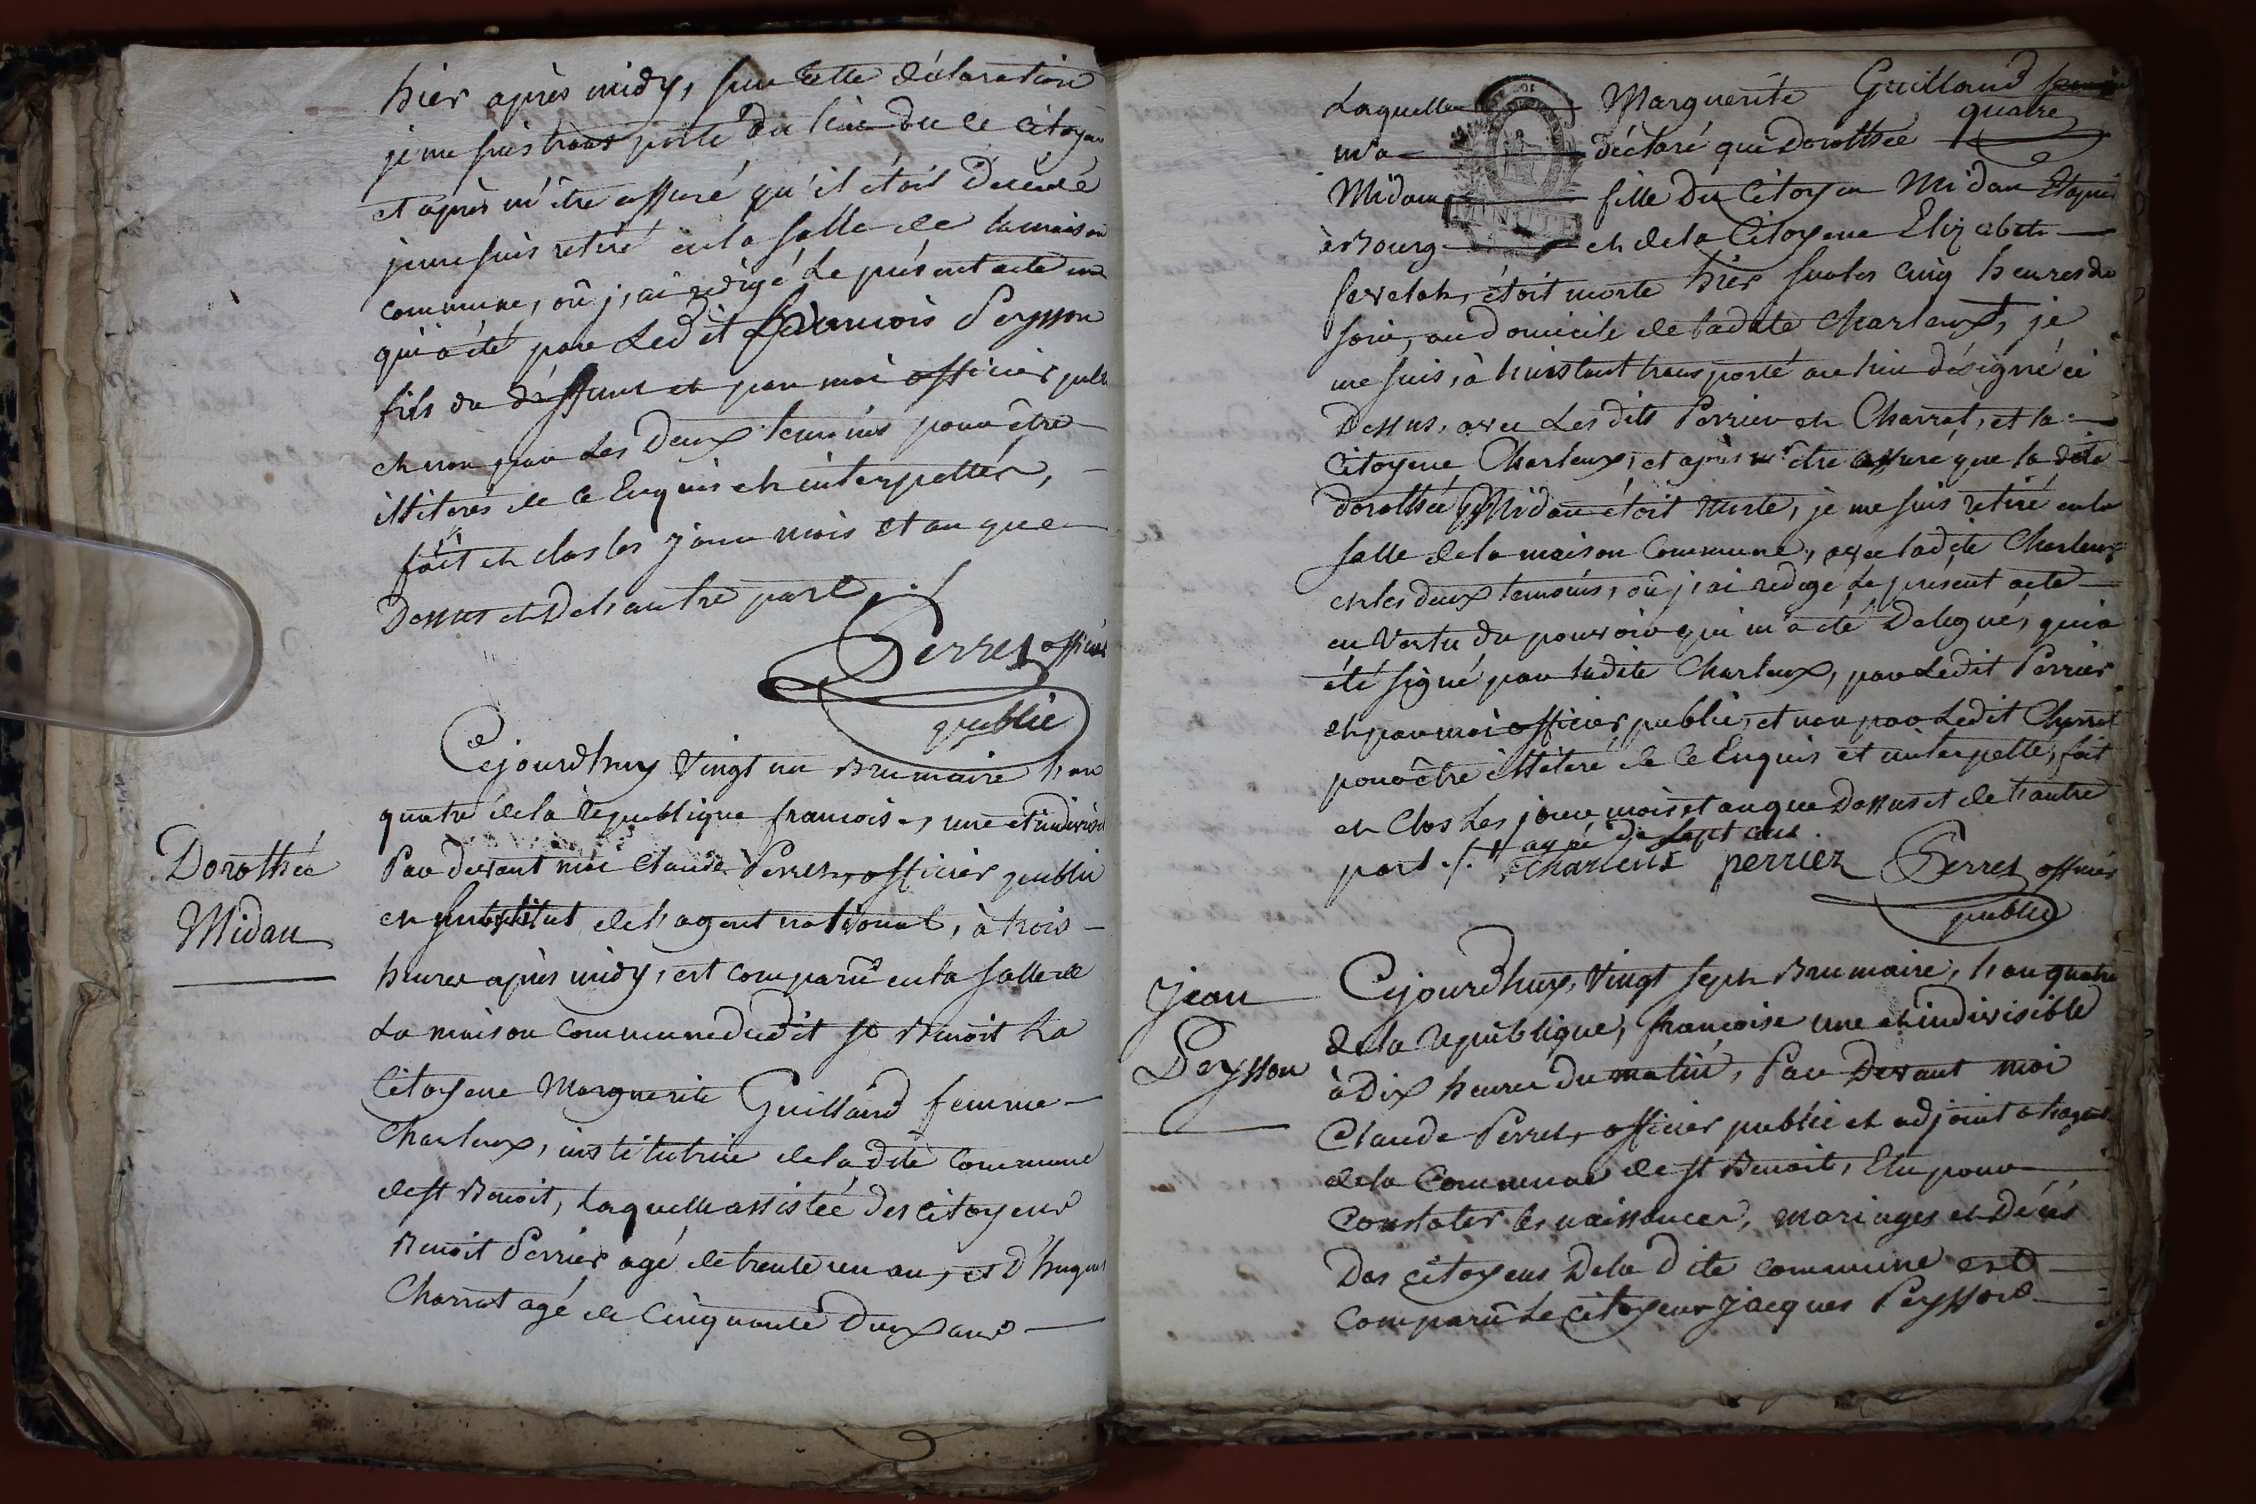 hier après midy, sur cette déclaration
je me suis trans porté au lieu du ce citoyen
et après m'être assuré qu'il étoit décédé
je me suis retiré en la salle de la maison
commune, où j'ai rédigé le présent acte
qui a été par ledit françois Peysson
fils du déffunt et par moi officier public
et non par les deux temoins pour être
illiterés de ce Enquis et interpellés,
fait et clos les jour mois et an que
Dessus et De l'autre part ./.
Perret officier
public
Dorothée
Midan
Cejourdhuy vingt un Brumaire l'an
quatre de la république francoise, une et indivisible
Par devant moi Claude Perret, officier public
et substitut de l'agent national, à trois
heures après midy, est comparüe en la salle de
La maison commune dudit St Benoit La
Citoyene Marguerite Guilland femme
Charleux, institutrice de la dite commune
de St Benoit, laquelle assistée des citoyens
Benoit Perrier agé de trente un an, et d'hugues
Charrat agé de Cinquante Deux ans
Laquelle Marguerite Guilland
quatre
m'a déclaré que Dorothée
Midan fille du Citoyen Midan
à Bourg et de la Citoyene Elizabeth
étoit morte hier sur les cinq heures du
soir, au domicile de ladite Charleux, je
me suis, à l'instant transporté au lieu désigné ci
Dessus, avec les dits Perrier et Charrat, et la
Citoyene Charleux, et après m'être assuré que la dite
dorothée Midan étoit morte, je me suis retiré en la
salle de la maison commune, avec ladite Charleux
et les deux temoins, où j'ai redigé le present acte
en vertu du pouvoir qui m'a été Delegué, qui a
été signé par ladite Charleux, par ledit Perrier
et par moi officier public, et non par ledit Charrat
pour être illiteré de ce Enquis et interpellé, fait
et Clos les jour mois et an que Dessus et de l'autre
part ./. agée de sept ans
Charleux perrier Perret officier
public
Jean
Peysson
Cejourdhuy, vingt sept Brumaire, l'an quatre
de la république, françoise une et indivisible
à Dix heures du matin, Par Devant moi
Claude Perret, officier public et adjoint a l'agent
de la Commune de St Benoit, Elu pour
Constater les naissances, mariages et Décés
Des citoyens De la Dite commune est
Comparû le citoyen Jacques Peysson